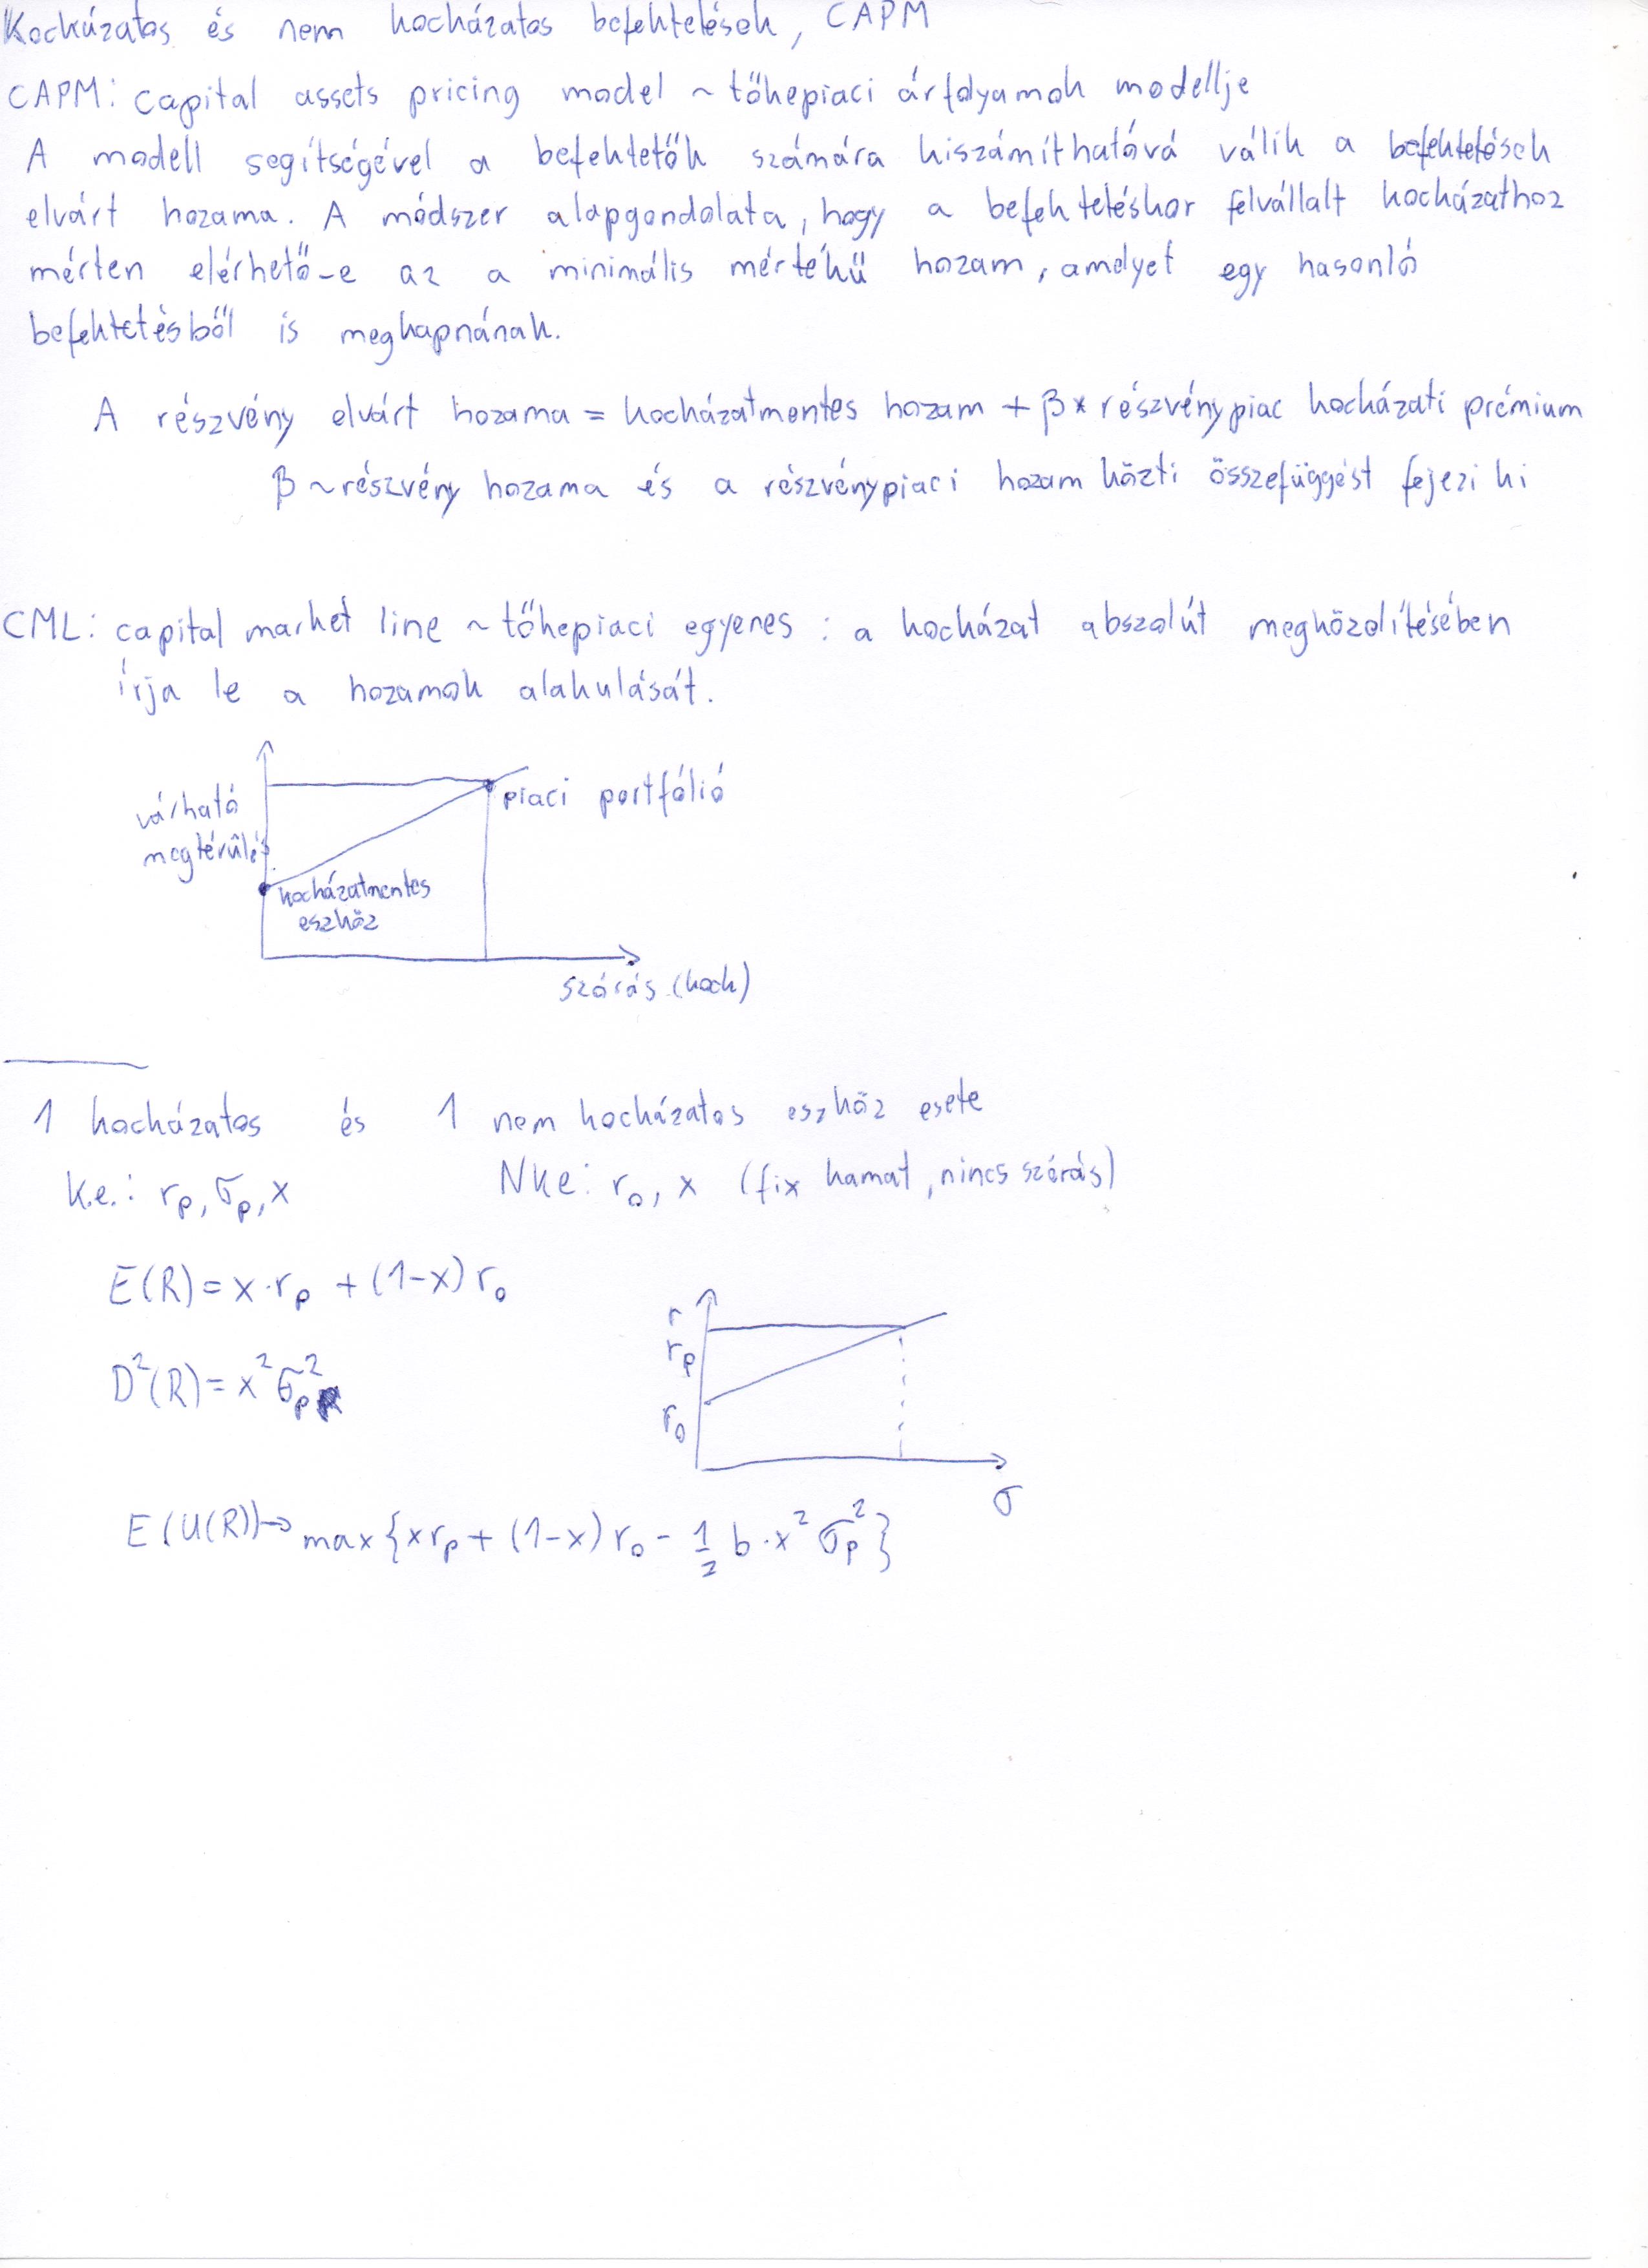 Kockázatos és nem kockázatos befektetések, CAPM
CAPM: capital assets pricing model ~ tőkepiaci árfolyamok modellje
A modell segítségével a befektetők számára kiszámíthatóvá válik a befektetések
elvárt hozama. A módszer alapgondolata, hogy a befektetéskor felvállalt kockázathoz
mérten elérhető-e az a minimális mértékű hozam, amelyet egy hasonló
befektetésből is megkapnának.
A részvény elvárt hozama = kockázatmentes hozam + β x részvénypiac kockázati prémium
β ~ részvény hozama és a részvénypiaci hozam közti összefüggést fejezi ki
CML: capital market line ~ tőkepiaci egyenes : a kockázat abszolút megközelítésében
írja le a hozamok alakulását.
várható
megtérülés
piaci portfólió
kockázatmentes
eszköz
szórás (kock)
1 kockázatos és 1 nem kockázatos eszköz esete
K.e.: r_p, σ_p, x Nke: r_0, x (fix kamat, nincs szórás)
E(R) = x·r_p + (1-x) r_0
D²(R) = x² σ_p²
r
r_p
r_0
σ
E(U(R)) → max{x r_p + (1-x) r_0 - 1/2 b·x² σ_p²}